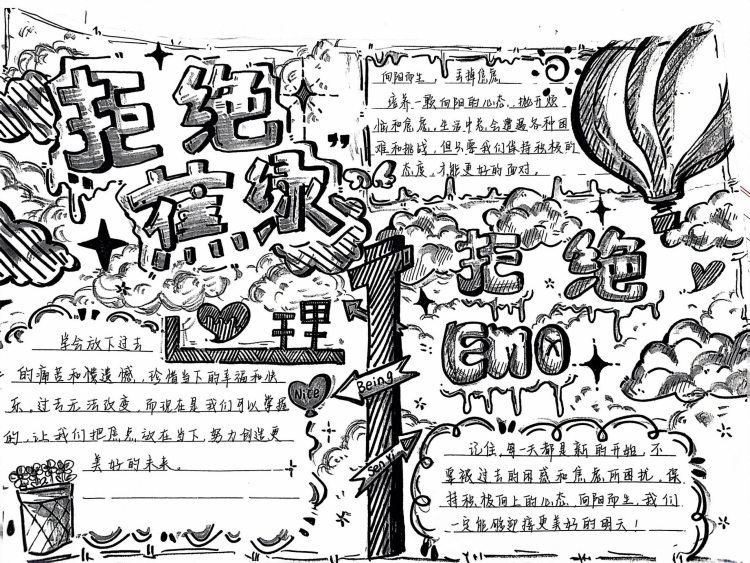 拒绝
蕉绿
向阳而生，丢掉焦虑
培养一颗向阳的心态，抛开烦
恼和焦虑，生活中总会遭遇各种困
难和挑战，但只要我们保持积极的
态度，才能更好的面对。
心理
学会放下过去
的痛苦和憾，珍惜当下的幸福和快
乐，过去无法改变，而现在是我们可以掌握
的，让我们把焦点放在当下，努力创造更
美好的未来。
Nice
Being
拒绝
EMO
记住，每一天都是新的开始，不
要被过去的困惑和焦虑所困扰，保
持积极向上的心态，向阳而生，我们
一定能够迎接更美好的明天！